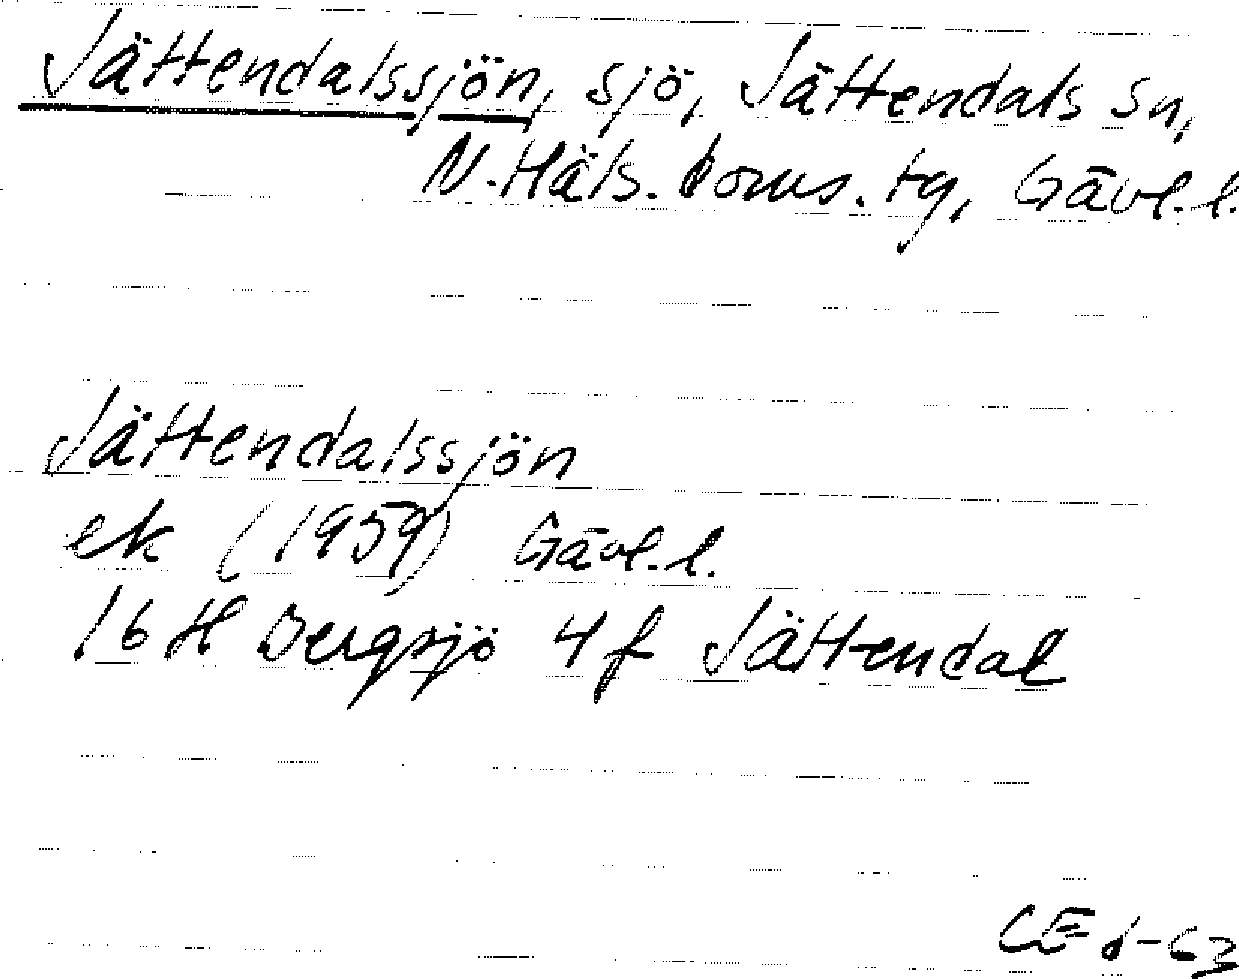 Jättendalssjön, sjö, Jättendals sn,
N. Häls. doms. tg, Gävl. l.
Jättendalssjön
ek (1959) Gävl. l.
16 H Bergsjö 4 f Jättendal
CE